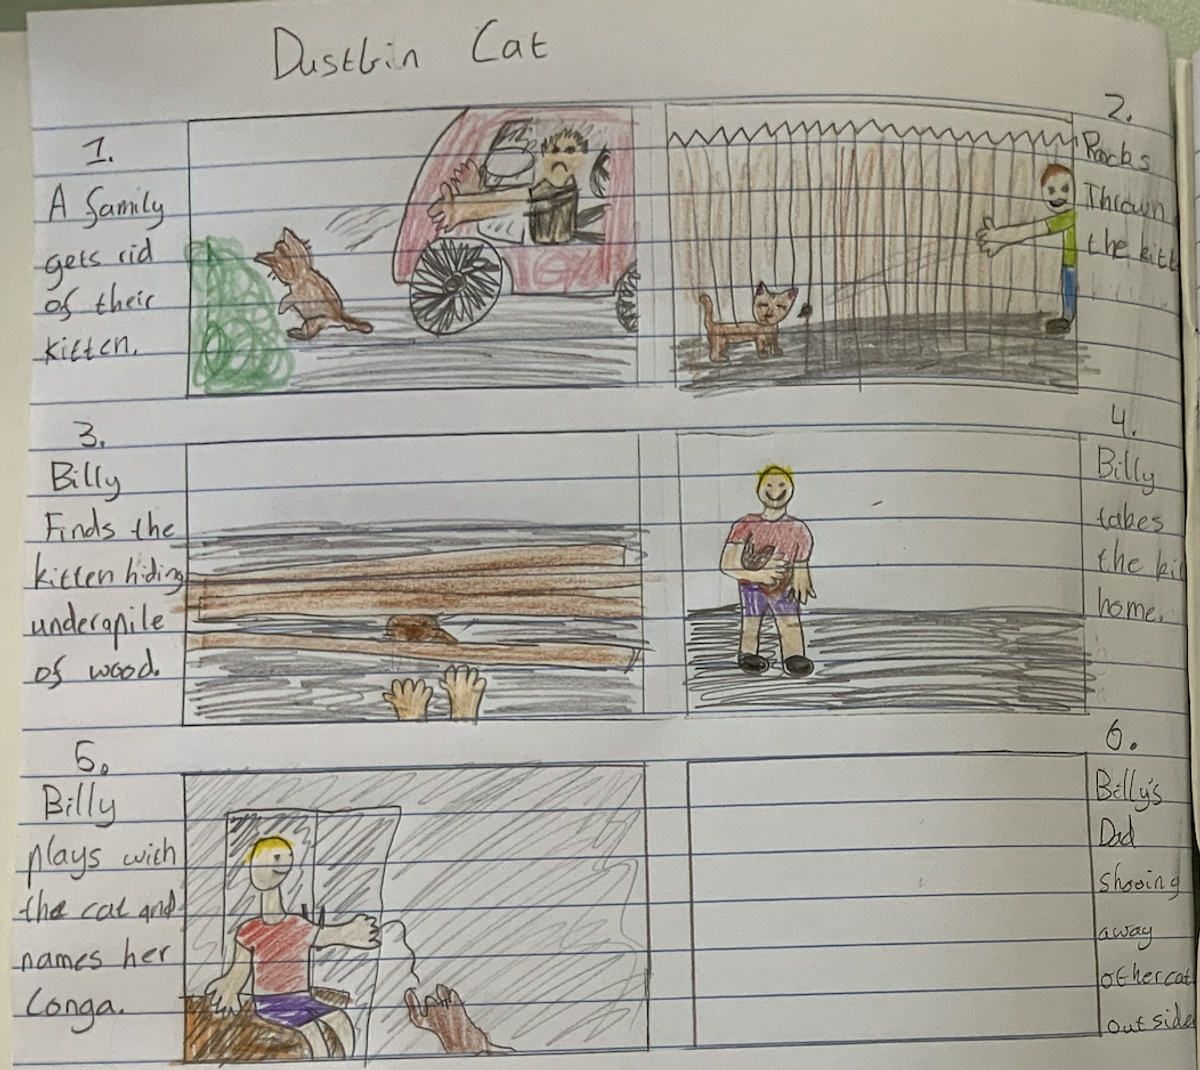 Dustbin Cat
1.
A family
gets rid
of their
kitten.
2.
Rocks
Thrown
the kitt
3.
Billy
Finds the
kitten hiding
under a pile
of wood.
4.
Billy
takes
the kit
home.
5.
Billy
plays with
the cat and
names her
Conga.
6.
Billy's
Dad
shooing
away
other cat
outside